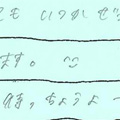 ても いつか ぜ
ます。 ^^
待っちょうよー